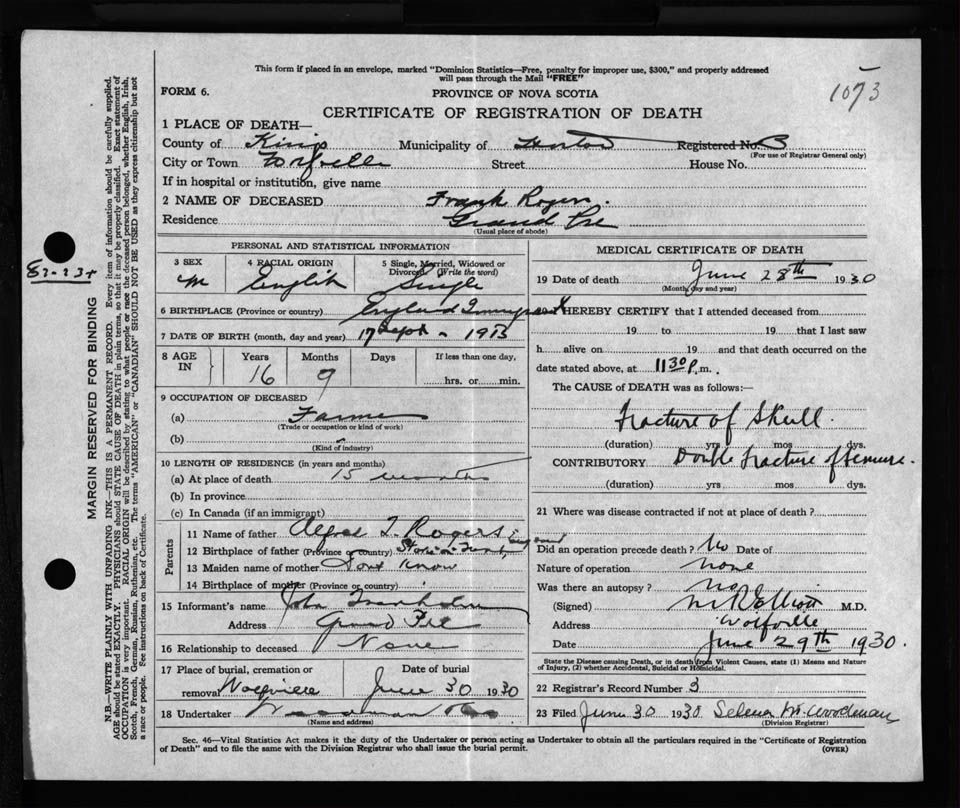 This form if placed in an envelope, marked "Dominion Statistics—Free, penalty for improper use, $300," and properly addressed
will pass through the Mail "FREE"
1073
FORM 6.
PROVINCE OF NOVA SCOTIA
CERTIFICATE OF REGISTRATION OF DEATH
1 PLACE OF DEATH—
County of Kings Municipality of Horton Registered No. 3
(For use of Registrar General only)
City or Town Wolfville Street House No.
If in hospital or institution, give name
2 NAME OF DECEASED Frank Rogers.
Residence Grand Pre
(Usual place of abode)
PERSONAL AND STATISTICAL INFORMATION
3 SEX 4 RACIAL ORIGIN 5 Single, Married, Widowed or
Divorced (Write the word)
M English Single
6 BIRTHPLACE (Province or country) England
7 DATE OF BIRTH (month, day and year) 17 Sept 1913
8 AGE IN Years Months Days If less than one day,
16 9 hrs. or min.
9 OCCUPATION OF DECEASED
(a) Farmer
(Trade or occupation or kind of work)
(b)
(Kind of industry)
10 LENGTH OF RESIDENCE (in years and months)
(a) At place of death 15 months
(b) In province
(c) In Canada (if an immigrant)
Parents
11 Name of father Alfred J. Rogers
12 Birthplace of father (Province or country) England
13 Maiden name of mother Dont Know
14 Birthplace of mother (Province or country)
15 Informant's name John
Address Grand Pre
16 Relationship to deceased None
17 Place of burial, cremation or Date of burial
removal Wolfville June 30 1930
18 Undertaker Woodman
(Name and address)
MEDICAL CERTIFICATE OF DEATH
19 Date of death June 28th 1930
(Month, day and year)
I HEREBY CERTIFY that I attended deceased from
19 to 19 that I last saw
h alive on 19 and that death occurred on the
date stated above, at 11 30 P. m.
The CAUSE of DEATH was as follows:—
Fracture of Skull.
(duration) yrs. mos. dys.
CONTRIBUTORY Double fracture of femure.
(duration) yrs. mos. dys.
21 Where was disease contracted if not at place of death?
Did an operation precede death? No Date of
Nature of operation none
Was there an autopsy? no
(Signed) M R Elliott M.D.
Address Wolfville
Date June 29th 1930.
State the Disease causing Death, or in death from Violent Causes, state (1) Means and Nature
of Injury, (2) whether Accidental, Suicidal or Homicidal.
22 Registrar's Record Number 3
23 Filed June 30 1930 Selena M. Woodman
(Division Registrar)
Sec. 46—Vital Statistics Act makes it the duty of the Undertaker or person acting as Undertaker to obtain all the particulars required in the "Certificate of Registration
of Death" and to file the same with the Division Registrar who shall issue the burial permit.
(OVER)
MARGIN RESERVED FOR BINDING
N.B.—WRITE PLAINLY WITH UNFADING INK—THIS IS A PERMANENT RECORD. Every item of information should be carefully supplied.
AGE should be stated EXACTLY. PHYSICIANS should STATE CAUSE OF DEATH in plain terms, so that it may be properly classified. Exact statement of
OCCUPATION is very important. RACIAL ORIGIN will be described by stating to what people or race the deceased person belonged, whether English, Irish,
Scotch, French, German, Russian, Ruthenian, etc. The terms "AMERICAN" or "CANADIAN" SHOULD NOT BE USED as they express citizenship but not
a race or people. See instructions on back of Certificate.